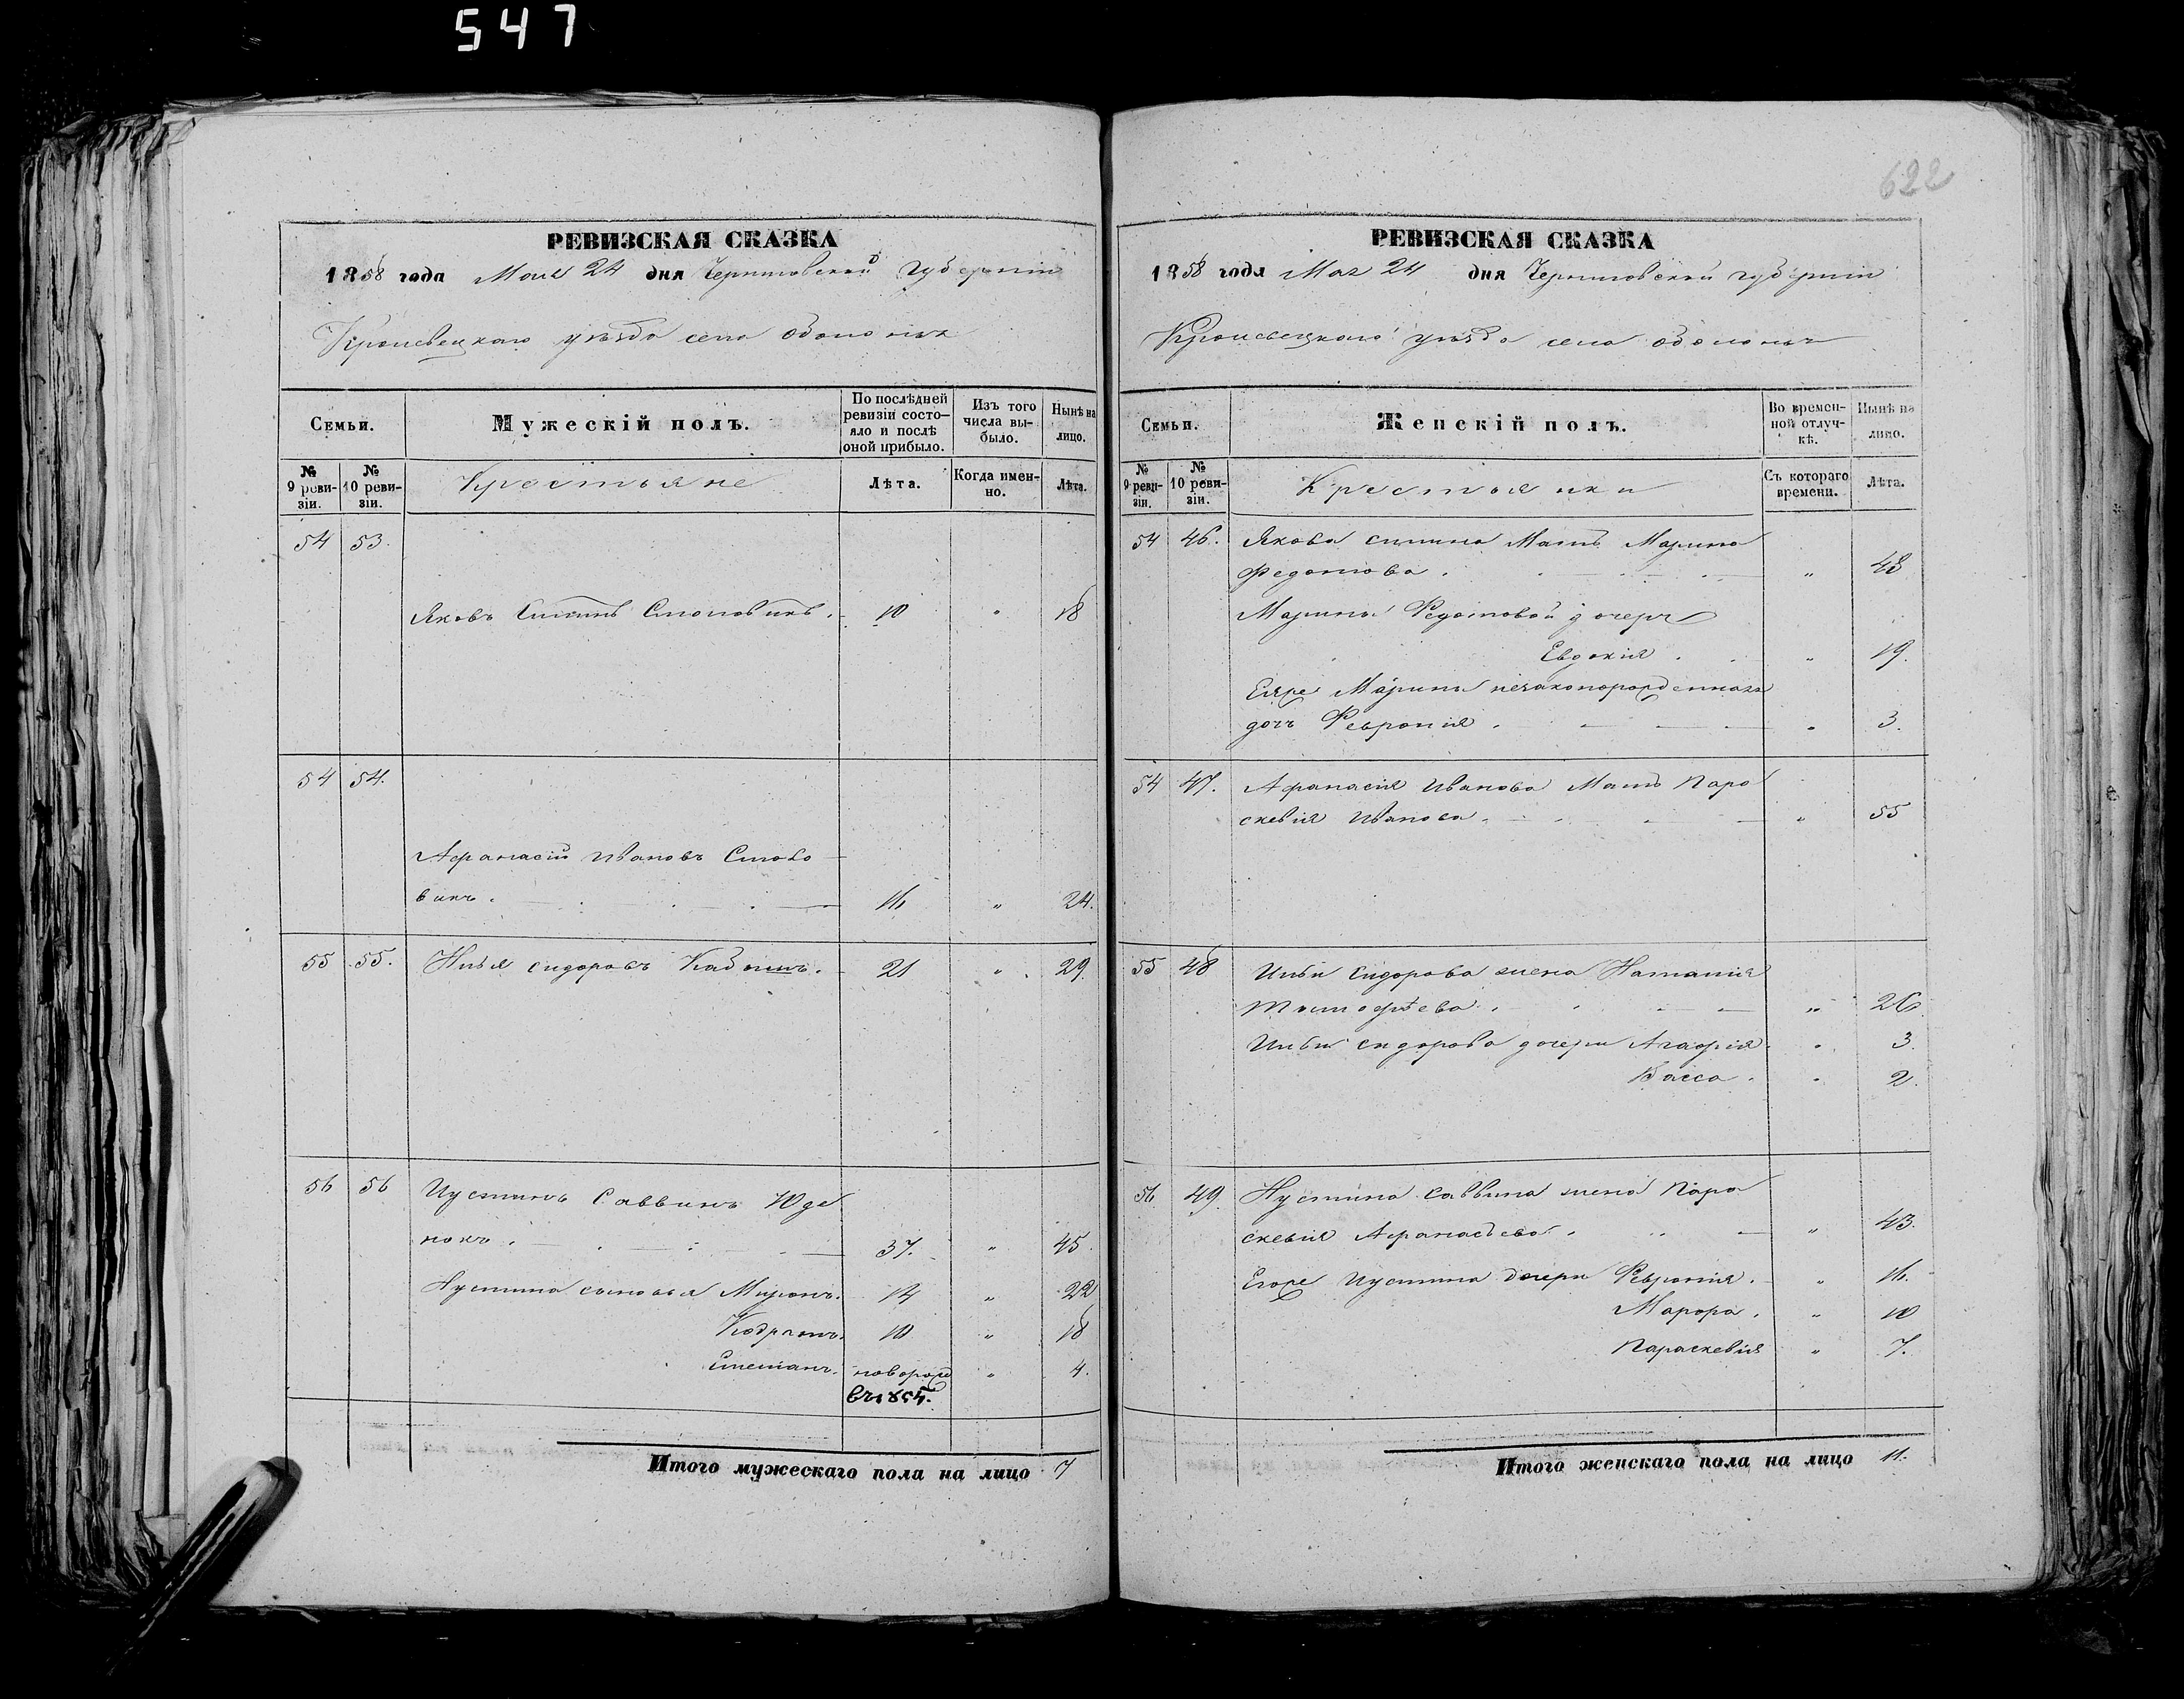 547
622
РЕВИЗСКАЯ СКАЗКА
1858 года Мая 24 дня Черниговской Губерніи
Кролевецкаго уѣзда села Оболонья
Семьи.
Мужескій полъ.
По послѣдней ревизіи состо-
яло и послѣ
оной прибыло.
Изъ того
числа вы-
было.
Нынѣ на
лицо.
№
9 реви-
зіи.
№
10 реви-
зіи.
Крестьяне
Лѣта.
Когда имен-
но.
Лѣта.
54 53.
Яковъ . 10 " 18
54 54.
Афанасій Ивановъ
викъ . 16 " 24.
55 55. Илья Сидоровъ . 21 " 29.
56 56 Иустинъ Саввинъ Юде
нокъ . 37. " 45.
Иустина сыновья Миронъ. 14 " 22
Кодратъ. 10 " 18
Степанъ. новорожд " 4.
въ 1854.
Итого мужескаго пола на лицо 7
РЕВИЗСКАЯ СКАЗКА
1858 года Мая 24 дня Черниговской губерніи
Кролевецкаго уѣзда села Оболонья
Семьи.
Женскій полъ.
Во времен-
ной отлуч-
кѣ.
Нынѣ на
лицо.
№
9 реви-
зіи.
№
10 реви-
зіи.
Крестьянки
Съ котораго
времени.
Лѣта.
54 46. Якова Мать Марина
Федотова . " 48
Марины Федотовой дочери
Евдокія . " 19.
Еяже Марины незаконорожденная
дочь Февронія . " 3.
54 47. Афанасія Иванова Мать Пара
скевія Иванова . " 55
55 48 Ильи Сидорова жена Наталія
Тимофѣева . " 26
Ильи Сидорова дочери Агафія . " 3.
Васса . " 2.
56 49. Иустина Саввина жена Пара
скевія Афанасьева . " 43.
Егоже Иустина дочери Февронія . " 16.
Марфа . " 10
Параскевія " 7.
Итого женскаго пола на лицо 11.